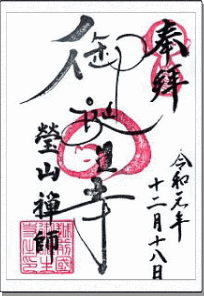 奉拝
令和元年
十二月十八日
御誕生寺
瑩山禅師